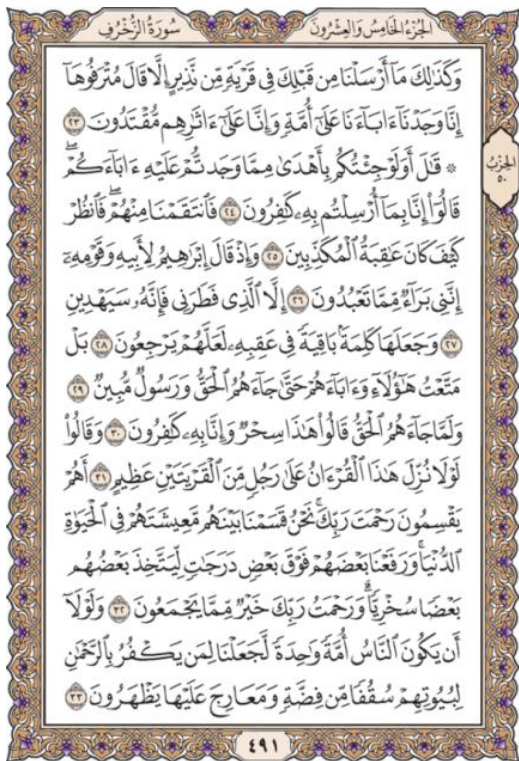 سُورَةُ الزُّخْرُفِ
الجُزْءُ الخَامِسُ وَالعِشْرُونَ
وَكَذَٰلِكَ مَآ أَرْسَلْنَا مِن قَبْلِكَ فِي قَرْيَةٍ مِّن نَّذِيرٍ إِلَّا قَالَ مُتْرَفُوهَآ
إِنَّا وَجَدْنَآ ءَابَآءَنَا عَلَىٰٓ أُمَّةٍ وَإِنَّا عَلَىٰٓ ءَاثَٰرِهِم مُّقْتَدُونَ ٢٣
۞ قَٰلَ أَوَلَوْ جِئْتُكُم بِأَهْدَىٰ مِمَّا وَجَدتُّمْ عَلَيْهِ ءَابَآءَكُمْۖ
الحِزْبُ
٥٠
قَالُوٓا۟ إِنَّا بِمَآ أُرْسِلْتُم بِهِۦ كَٰفِرُونَ ٢٤ فَٱنتَقَمْنَا مِنْهُمْۖ فَٱنظُرْ
كَيْفَ كَانَ عَٰقِبَةُ ٱلْمُكَذِّبِينَ ٢٥ وَإِذْ قَالَ إِبْرَٰهِيمُ لِأَبِيهِ وَقَوْمِهِۦٓ
إِنَّنِي بَرَآءٌ مِّمَّا تَعْبُدُونَ ٢٦ إِلَّا ٱلَّذِي فَطَرَنِي فَإِنَّهُۥ سَيَهْدِينِ
٢٧ وَجَعَلَهَا كَلِمَةًۢ بَاقِيَةً فِي عَقِبِهِۦ لَعَلَّهُمْ يَرْجِعُونَ ٢٨ بَلْ
مَتَّعْتُ هَٰٓؤُلَآءِ وَءَابَآءَهُمْ حَتَّىٰ جَآءَهُمُ ٱلْحَقُّ وَرَسُولٌ مُّبِينٌ ٢٩
وَلَمَّا جَآءَهُمُ ٱلْحَقُّ قَالُوا۟ هَٰذَا سِحْرٌ وَإِنَّا بِهِۦ كَٰفِرُونَ ٣٠ وَقَالُوا۟
لَوْلَا نُزِّلَ هَٰذَا ٱلْقُرْءَانُ عَلَىٰ رَجُلٍ مِّنَ ٱلْقَرْيَتَيْنِ عَظِيمٍ ٣١ أَهُمْ
يَقْسِمُونَ رَحْمَتَ رَبِّكَۚ نَحْنُ قَسَمْنَا بَيْنَهُم مَّعِيشَتَهُمْ فِي ٱلْحَيَوٰةِ
ٱلدُّنْيَاۚ وَرَفَعْنَا بَعْضَهُمْ فَوْقَ بَعْضٍ دَرَجَٰتٍ لِّيَتَّخِذَ بَعْضُهُم
بَعْضًا سُخْرِيًّاۗ وَرَحْمَتُ رَبِّكَ خَيْرٌ مِّمَّا يَجْمَعُونَ ٣٢ وَلَوْلَآ
أَن يَكُونَ ٱلنَّاسُ أُمَّةً وَٰحِدَةً لَّجَعَلْنَا لِمَن يَكْفُرُ بِٱلرَّحْمَٰنِ
لِبُيُوتِهِمْ سُقُفًا مِّن فِضَّةٍ وَمَعَارِجَ عَلَيْهَا يَظْهَرُونَ ٣٣
٤٩١